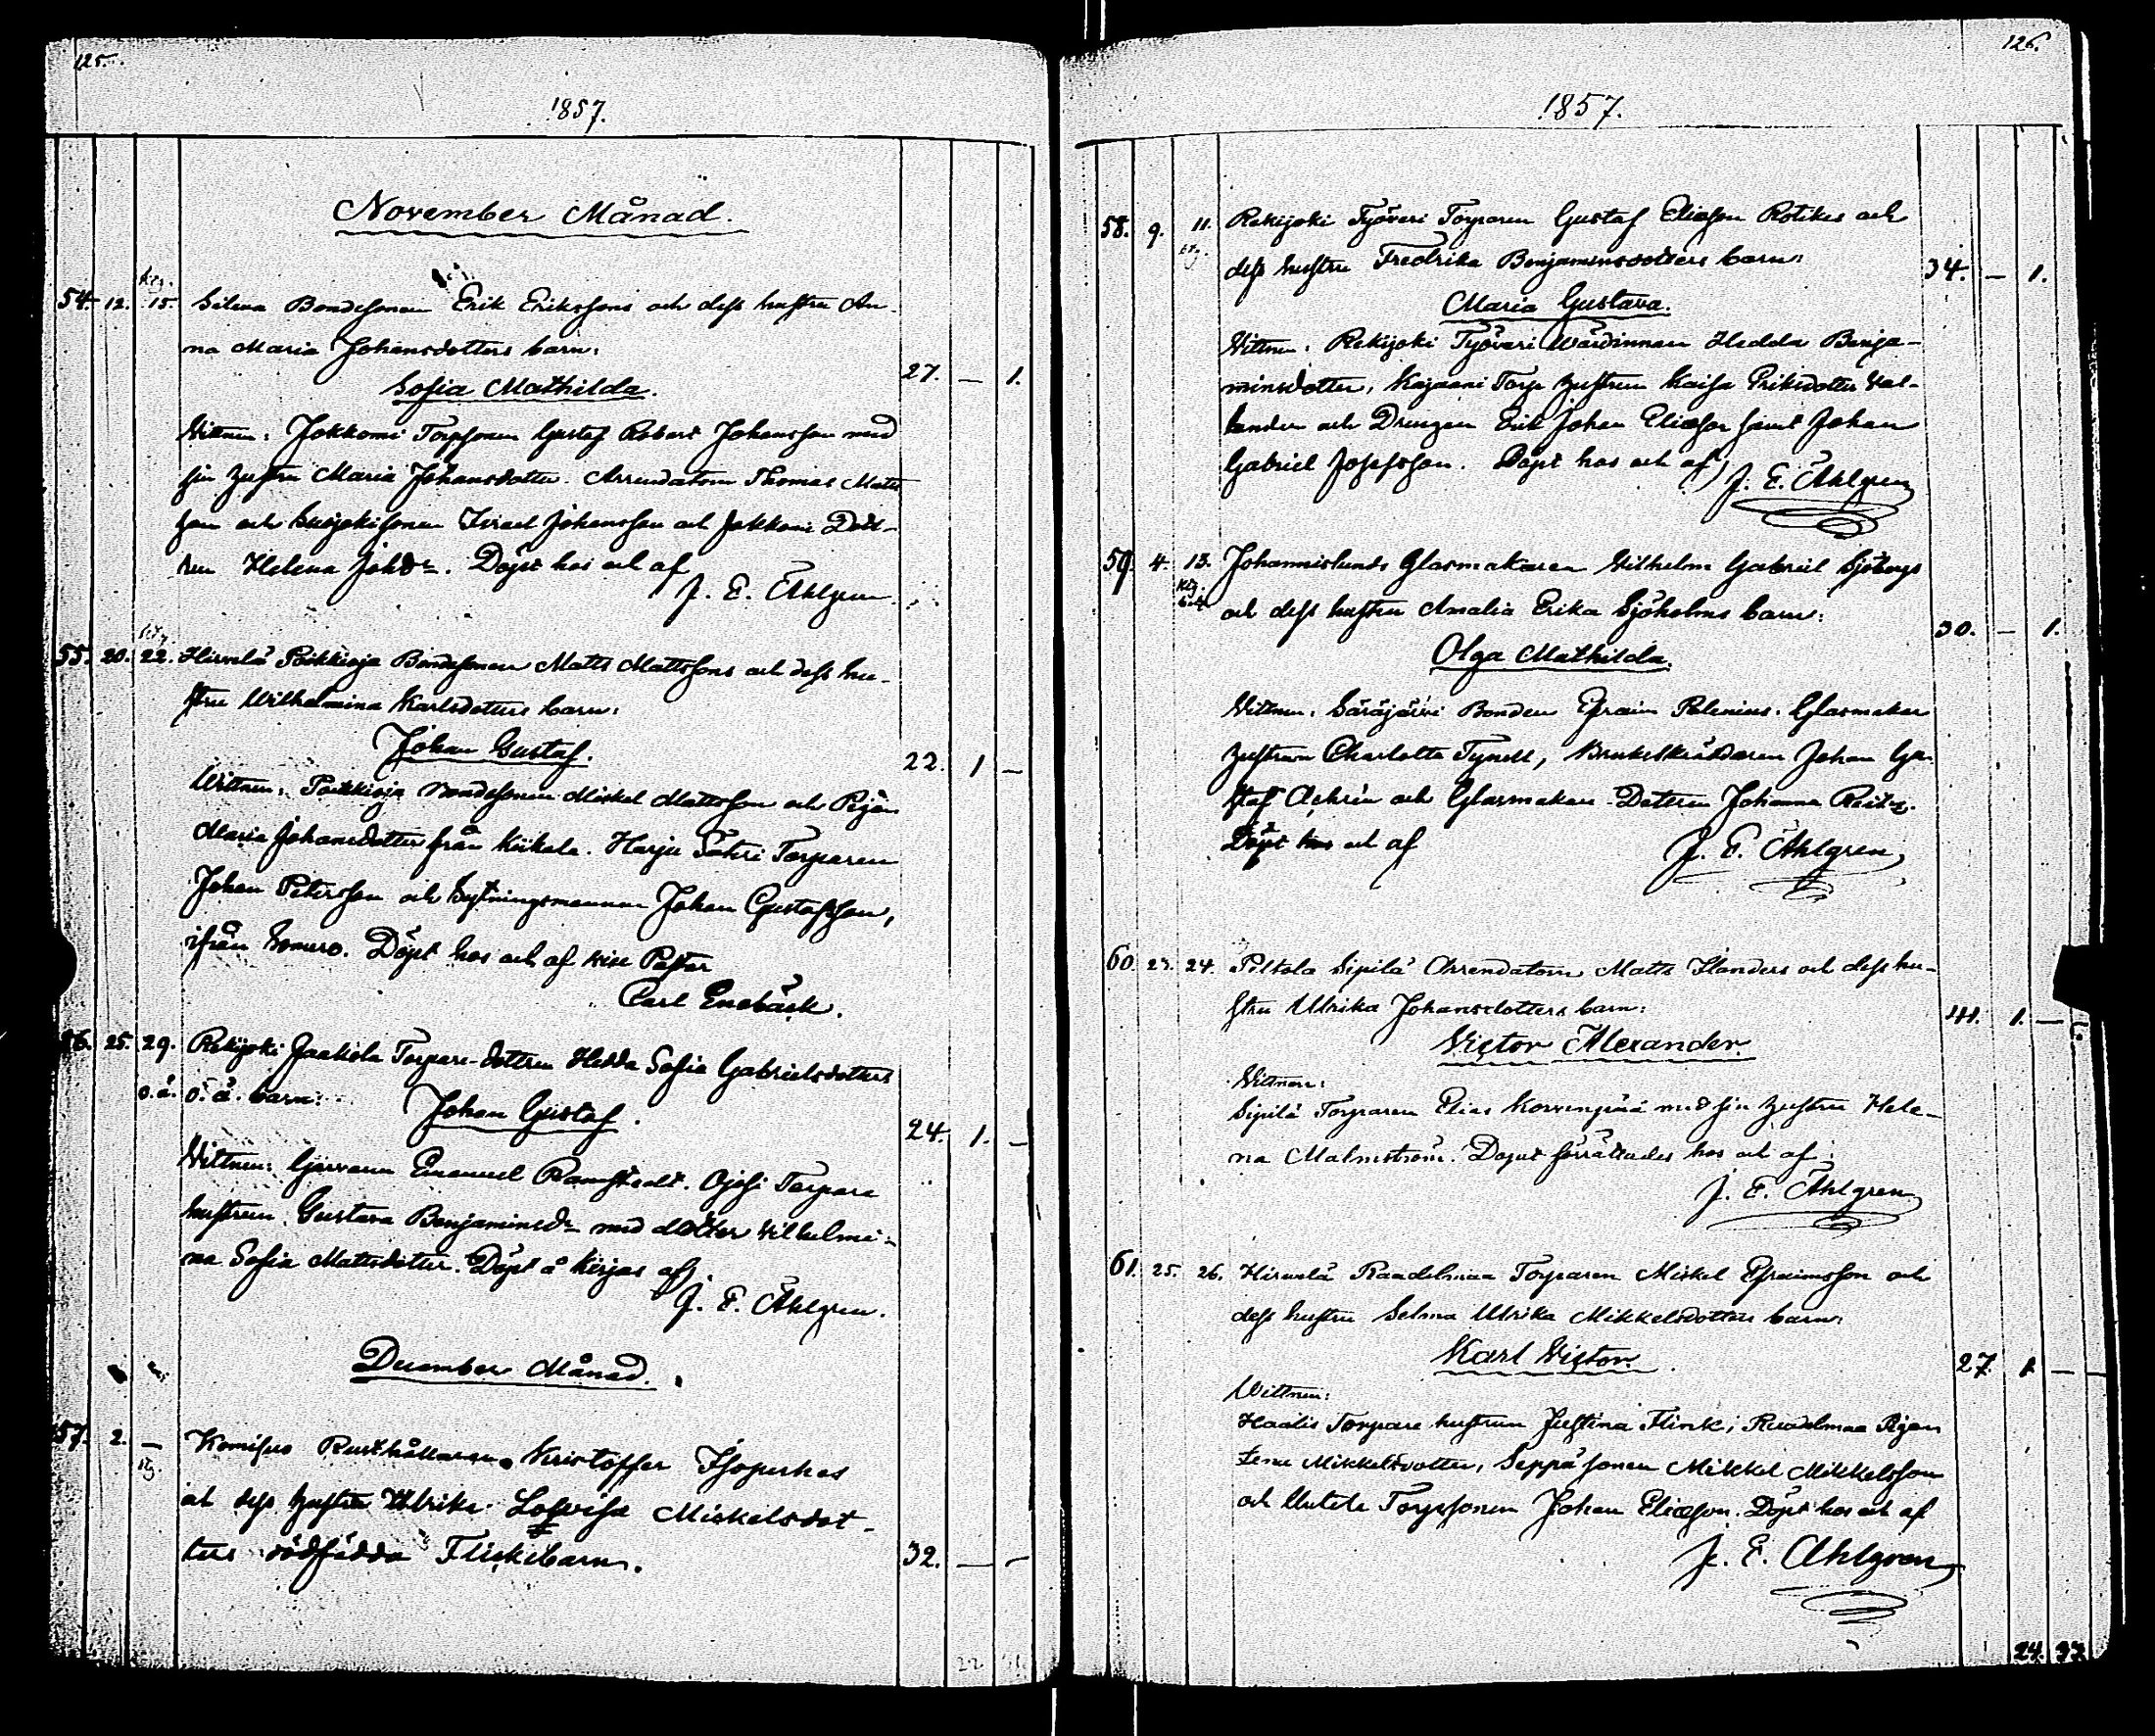 125.
1857.
November Månad.
54. 12. 15. Silena Bondesonen Erik Erikssons och dess hustru An-
na Maria Johansdotters barn:
Sofia Mathilda. 27. — 1.
Vittnen: Jokkomi Torpsonen Gustaf Robert Johansson med
sin hustru Maria Johansdotter. Arrendatorn Thomas Matts
son och Israel Johansson och Jokkomi Dott-
ren Helena Johdr. Döpt hos och af
J. E. Ahlgren.
55. 20. 22. Hirvelä Poikkioja Bondesonen Matts Mattssons och dess hu-
stru Wilhelmina Karlsdotters barn:
Johan Gustaf. 22. 1 —
Wittnen: Poikkioja Bondesonen Mickel Mattsson och Pigan
Maria Johansdotter från Kiikala. Harju Säteri Torparen
Johan Petersson och Sytningsmannen Johan Gustafsson,
ifrån Somero. Döpt hos och af vice Pastor
Carl Enebäck.
56. 25. 29. Rekijoki Jaakola Torpare-dottren Hedda Sofia Gabrielsdotters
o.ä. o.ä. barn:
Johan Gustaf. 24. 1. —
Vittnen: Emanuel Ramstedt. Ojasi Torpare
hustrun Gustava Benjaminsdr med dotter Wilhelmi-
na Sofia Mattsdotter. Döpt å Kirjas af
J. E. Ahlgren.
December Månad.
57. 2. — Komisuo Rusthållaren Kristoffer
och dess hustru Ulrika Lovisa Mickelsdot-
ters dödfödda Flickebarn. 32. — —
126.
1857.
58. 9. 11. Rekijoki Työväri Torparen Gustaf Eliasson Rotikes och
dess hustru Fredrika Benjaminsdotters barn: 34. — 1.
Maria Gustava.
Vittnen: Rekijoki Työväri Wärdinnan Hedda Benja-
minsdotter, Kajaani Torp hustrun Kaisa Eriksdotter Val-
lander och Drengen Erik Johan Eliasson samt Johan
Gabriel Josefsson. Döpt hos och af
J. E. Ahlgren
59. 4. 13. Johannislunds Glasmakaren Wilhelm Gabriel Sjöbergs
och dess hustru Amalia Erika Sjöholms barn: 30. — 1.
Olga Mathilda.
Vittnen: Säräjärvi Bonden Efraim Polenius. Glasmakar
hustrun Charlotta Tynell, Bruksskräddaren Johan Gu-
staf Achrén och Glasmakare-Dottren Johanna
Döpt hos och af
J. E. Ahlgren
60. 23. 24. Piltola Sipilä Arrendatorn Matts Ilanders och dess hu-
stru Ulrika Johansdotters barn: 41. 1. —
Victor Alexander.
Vittnen:
Sipilä Torparen Elias Korvenpää med sin hustru Hele-
na Malmström. Dopet förrättades hos och af
J. E. Ahlgren
61. 25. 26. Hirvelä Raadelmaa Torparen Mickel Efraimsson och
dess hustru Selma Ulrika Mikkelsdotters barn:
Karl Victor. 27. 1 —
Wittnen:
Haalis Torpare hustrun Justina Flink, Raadelmaa Pigan
Lena Mikkelsdotter, Seppä sonen Mikkel Mikkelsson
och Torpsonen Johan Eliasson. Döpt hos och af
J. E. Ahlgren
24. 37.